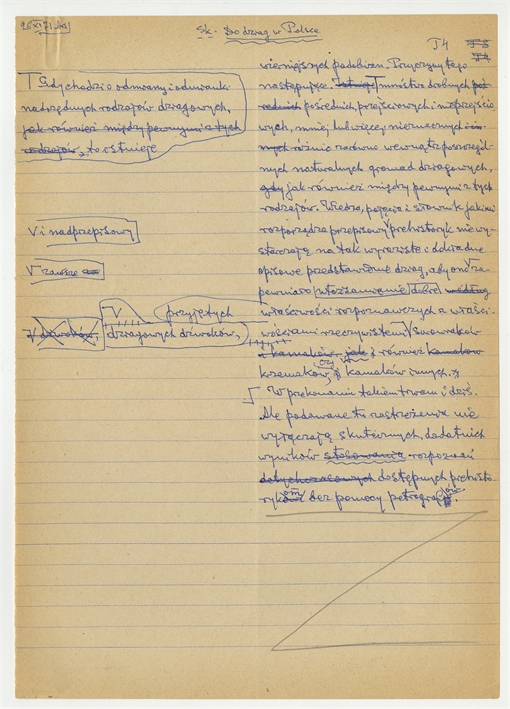 Sk. Do dziag w Polsce
J4
T Gdy chodzi o odmiany i odmianki
nadrzędnych rodzajów dziagowych,
jak również między pewnymi z tych
rodzajów, to istnieje
V i nadprzepisowy
V zawsze
V przyjętych
dziagowych dziwoków,
wierniejszych podobizn. Przyczyny tego
następujące. Istnieje T mnóstwo drobnych
pośrednich, przejściowych i nieprzejścio
wych, mniej lub więcej nieznacznych
różnic zarówno wewnątrz poszczegól-
nych naturalnych gromad dziagowych,
jak również między pewnymi z tych
rodzajów. Wiedza, pojęcia i słownik jakimi
rozporządza przepisowy V prehistoryk nie wy-
starczają na tak wyraziste i dokładne
opisowe przedstawienie dziag, aby on V za-
pewniało utożsamienie
właściwości rozpoznawczych z właści-
wościami rzeczywistemi V surowiaków
i kamaków jak i również kamaków
krzemaków, czy kamaków innych.
W przekonaniu takiem trwam i dziś.
Ale podawane tu zastrzeżenia nie
wyłączają skutecznych, dodatnich
wyników stosowania rozpoznań
dotychczasowych dostępnych prehisto-
rykom bez pomocy petrografów.